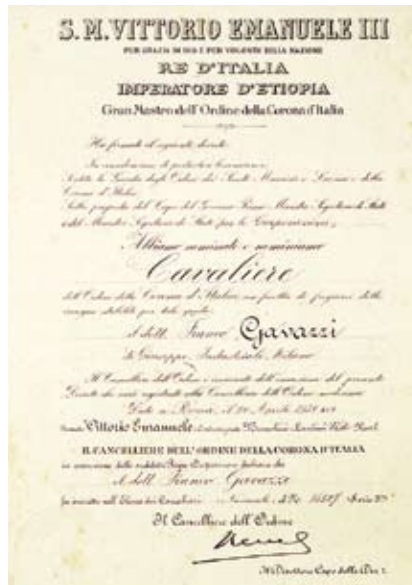 S. M. VITTORIO EMANUELE III
PER GRAZIA DI DIO E PER VOLONTÀ DELLA NAZIONE
RE D'ITALIA
IMPERATORE D'ETIOPIA
Gran Mastro dell'Ordine della Corona d'Italia
Ha firmato il seguente decreto:
In considerazione di particolari benemerenze;
Sentita la Giunta degli Ordini dei Santi Maurizio e Lazzaro e della
Corona d'Italia;
Sulla proposta del Capo del Governo Primo Ministro Segretario di Stato
e del Ministro Segretario di Stato per le Corporazioni;
Abbiamo nominato e nominiamo
Cavaliere
dell'Ordine della Corona d'Italia con facoltà di fregiarsi delle
insegne stabilite per tale grado
il dott. Franco Gavazzi
di Giuseppe, Industriale, Milano
Il Cancelliere dell'Ordine è incaricato dell'esecuzione del presente
Decreto che sarà registrato alla Cancelleria dell'Ordine medesimo
Dato a Roma, il Aprile
Vittorio Emanuele
IL CANCELLIERE DELL'ORDINE DELLA CORONA D'ITALIA
in esecuzione della suddetta Regia Disposizione dichiara che
il dott. Franco Gavazzi
fu inscritto nell'Elenco dei Cavalieri
Il Cancelliere dell'Ordine
Il Direttore Capo della Div.